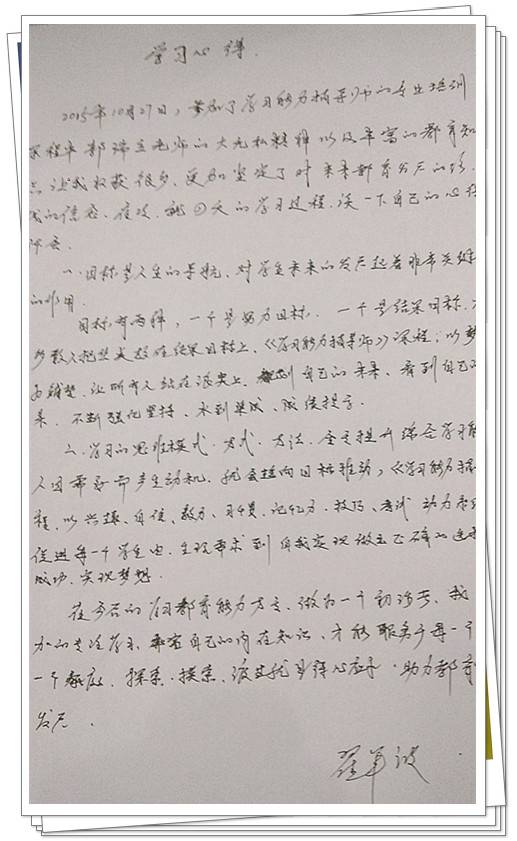 学习心得.
2015年10月27日,参加了学习能力指导师的专业培训
课程中郭瑞立老师的大无私精神以及丰富的教育知
让我收获很多,更加坚定了对未来教育发展的
我的信念.在这,就四天的学习过程.谈一下自己的心得
体会.
一.目标是人生的导航,对学生未来的发展起着非常关键
的作用.
目标有两种,一个是努力目标.一个是结果目标.
多数人把焦点放在结果目标上.《学习能力指导师》课程;以梦
让所有人站在现实上.看到自己的未来,看到自己
果.不断强化坚持.水到渠成、成绩提高.
二.学习的思维模式.方式.方法.全是提升综合学习能
人因需要而产生动机.就会指向目标推动,《学习能力指
程,以兴趣.自信、毅力、习惯.记忆力.技巧、考试动力
促进每一个学生由.生理需求到自我实现
成功.实现梦想.
在今后的学习教育能力方面、做为一个初
自己的内在知识、才能服务于每一个
一个家庭.探索.摸索.得心应手.助力教育
发展.